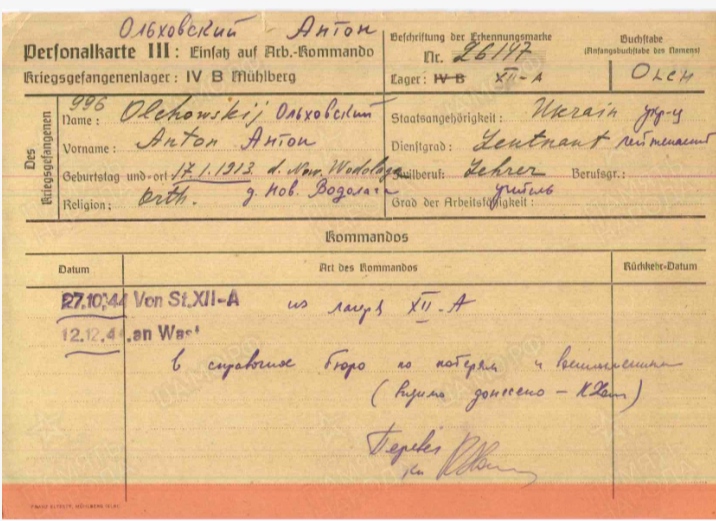 Ольховский Антон
Personalkarte III: Einsatz auf Arb.-Kommando
Kriegsgefangenenlager: IV B Mühlberg
Beschriftung der Erkennungsmarke
Nr. 26147
Lager: IV B XII-A
Buchstabe
(Anfangsbuchstabe des Namens)
OLCH
Des Kriegsgefangenen
996
Name: Olchowskij Ольховский
Vorname: Anton Антон
Geburtstag und -ort 17.1.1913. d. Now. Wodolaga
д. Нов. Водолага
Religion: Orth.
Staatsangehörigkeit: Ukrain укр-ц
Dienstgrad: Leutnant лейтенант
Zivilberuf: Lehrer Berufsgr.:
учитель
Grad der Arbeitsfähigkeit:
Kommandos
Datum Art des Kommandos Rückkehr-Datum
27.10.44 Von St.XII-A из лагеря XII-A
12.12.44 an Wast
в справочное бюро по потерям и
(видимо донесено -
Перевел